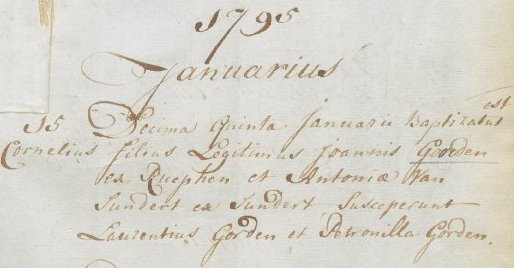 1795
Januarius
15 Decima Quinta Januarii Baptizatus est
Cornelius filius Legitimus Joannis Goorden
ex Rucphen et Antoniæ Van
Sundert ex Sundert Susceperunt
Laurentius Gorden et Petronilla Gorden.